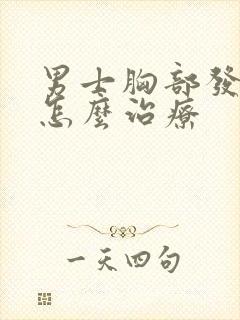 男士胸部發
怎麼治療
一天四句